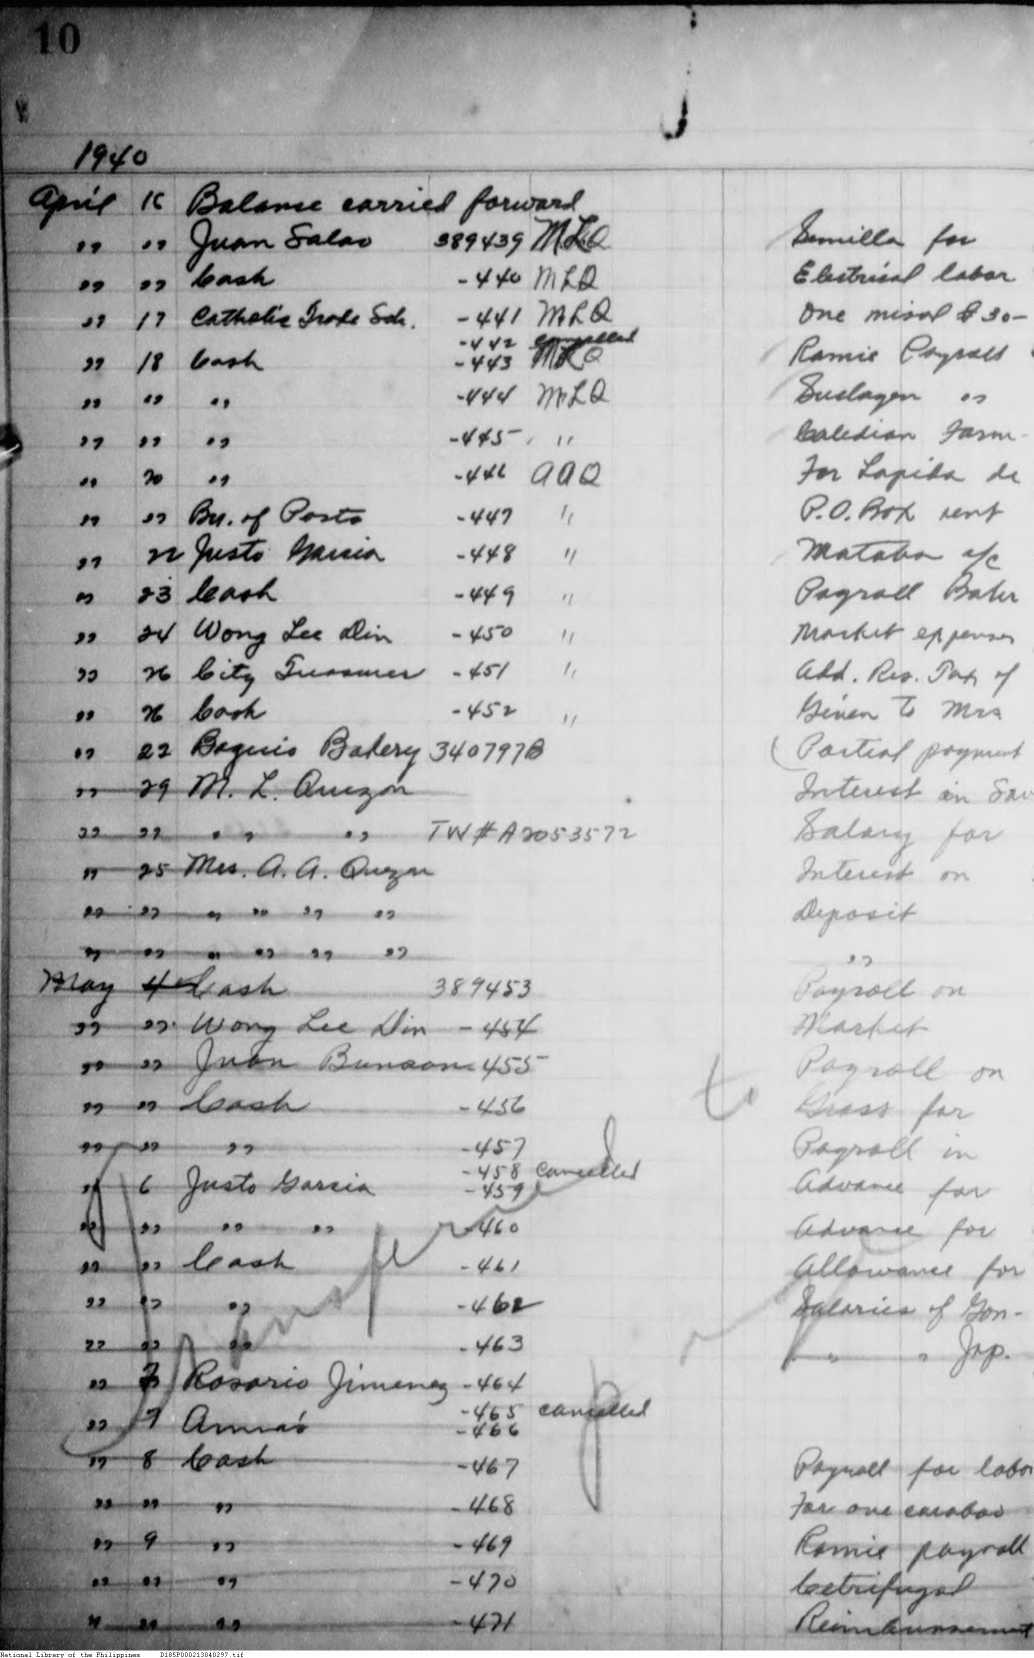 10
1940
April 16 Balance carried forward
" " Juan Salao 389439 MLQ Semilla for
" " Cash -440 MLQ Electrical labor
" 17 Catholic Trade Sch. -441 MLQ One misal $30-
-442 cancelled
" 18 Cash -443 MLQ Ramie Payroll
" " " -444 MLQ "
" " " -445 " Farm-
" 20 " -446 AAQ For Lapida de
" " Bu. of Posts -447 " P.O. Box rent
" 22 Justo Garcia -448 " a/c
" 23 Cash -449 " Payroll
" 24 Wong Lee Din -450 " Market expenses
" 26 City Treasurer -451 " Add. Res. Tax of
" 26 Cash -452 " Given to Mrs
" 22 Baguio Bakery 340797B (Partial payment
" 29 M. L. Quezon Interest on Sav
" " " " " TW#A2053572 Salary for
" 25 Mrs. A. A. Quezon Interest on
" " " " " " Deposit
" " " " " " "
May 4 Cash 389453 Payroll on
" " Wong Lee Din -454 Market
" " Juan -455 Payroll on
" " Cash -456 Grass for
" " " -457 Payroll in
-458 cancelled
" 6 Justo Garcia -459 Advance for
" " " " -460 Advance for
" " Cash -461 Allowance for
" " " -462 Salaries of Gon-
" " " -463 " " Jap.
" 7 Rosario Jimenez -464
-465 cancelled
" 7 -466
" 8 Cash -467 Payroll for labor
" " " -468 For one carabao
" 9 " -469 Ramie payroll
" " " -470 Cetrifugal
" " " -471 Reimbursement
Transferred to
National Library of the Philippines D185P000213040297.tif